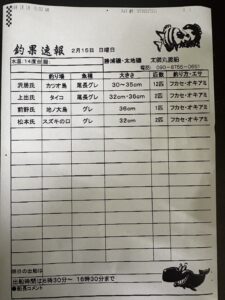 釣果速報 2月15日 日曜日
水温 14度台 勝浦磯・太地磯
電話: 090-8755-0651
釣り場 魚種 大きさ 匹数 釣り方・エサ
沢居氏 カツオ島 尾長グレ 30〜35cm 13匹 フカセ・オキアミ
上出氏 タイコ 尾長グレ 32cm・36cm 2匹 フカセ・オキアミ
前野氏 地ノ大島 グレ 36cm 1匹 フカセ・オキアミ
松本氏 スズキの口 グレ 32cm 2匹 フカセ・オキアミ
明日の出船は
出船時間は6時30分〜 16時30分まで
●船長コメント